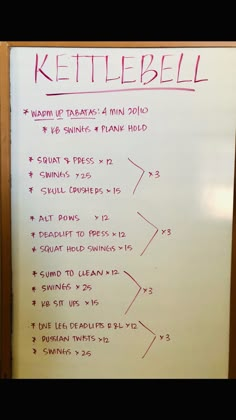 KETTLEBELL
* WARM UP TABATAS: 4 MIN 20/10
* KB SWINGS * PLANK HOLD
* SQUAT & PRESS x 12
* SWINGS x 25 x3
* SKULL CRUSHERS x 15
* ALT ROWS x 12
* DEADLIFT TO PRESS x 12 x3
* SQUAT HOLD SWINGS x 15
* SUMO TO CLEAN x 12
* SWINGS x 25 x3
* KB SIT UPS x 15
* ONE LEG DEADLIFTS R&L x 12
* RUSSIAN TWISTS x12 x3
* SWINGS x 25